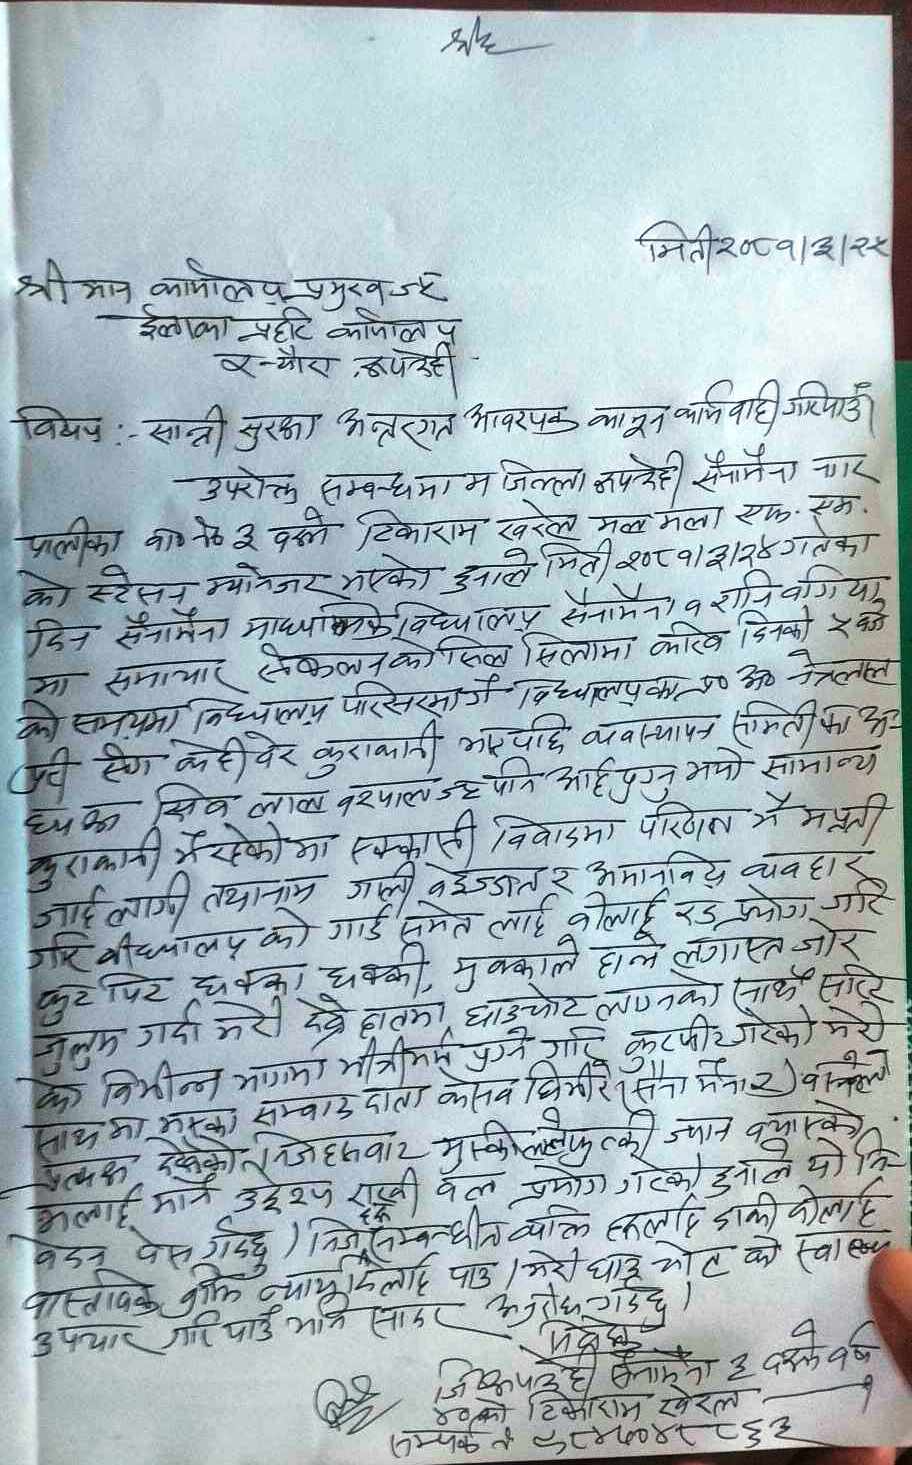 मिती २०८१।३।२५
श्रीमान कार्यालय प्रमुखज्यू
ईलाका प्रहरि कार्यालय
रुपन्देही
विषय :- सान्ती सुरक्षा अन्तरगत आवश्यक कानून कार्यवाही गरिपाउँ
उपरोक्त सम्बन्धमा म जिल्ला रुपन्देही सैनामैना नगर
पालीका वा० नं० ३ बस्ने टिकाराम खरेल मल मला एफ. एम.
को स्टेसन म्यानेजर भएको हुनाले मिती २०८१।३।२४ गतेका
दिन सैनामैना माध्यामिक विध्यालय सैनामैना ९ शनि वगिया
मा समाचार संकलनको सिल सिलामा करिव दिनको २ वजे
को समयमा विध्यालय परिसरमा विध्यालयका प्र० अ० नेत्रलाल
संग केही वेर कुराकानी भएपछि व्यवस्थापन समितीका अ-
ध्यक्ष सिव लाल ज्यू पनि आईपुग्नु भयो सामान्य
कुराकानी भैरहेको मा एक्कासी विवादमा परिणत भै मप्रती
जाई लागी तथानाम गाली वेईज्जत र अमानविय व्यवहार
गरि वीध्यालय को गार्ड समेत लाई वोलाई रड प्रयोग गरि
कुट पिट धक्का धक्की, मुक्काले हाने लगाएत जोर
जुलुम गर्दा मेरो देब्रे हातमा घाउचोट लाग्नको साथै सरिर
को विभीन्न भागमा भीत्रीमर्म पुग्ने गरि कुटपीट गरेको मेरो
साथ मा भएका सम्वाद दाता केसव घिमीरे (सैना मैना २) वस्नेले
प्रत्यक्ष देखेको निजहरुवाट मुस्कीलले ज्यान वचाएको
मलाई मार्ने उद्देश्य राखी वल प्रयोग गरेको हुनाले यो नि-
वेदन पेस गर्दछु। निज सम्वन्धीत व्यक्ति हरुलाई डाकी वोलाई
हक
वास्तविक वुझि न्याय दिलाई पाउ। मेरो घाउ चोट को स्वास्थ्य
उपचार गरिपाउँ भनि सादर अनुरोध गर्दछु।
निवेदक
जि. रुपन्देही सैनामैना ३ वस्ने वर्ष
४० को टिकाराम खरेल ——— १
सम्पर्क नं